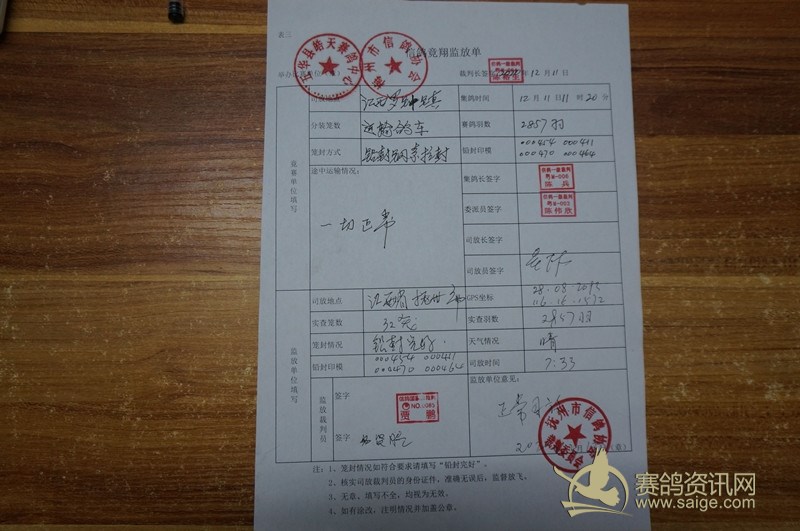 表三
信鸽竞翔监放单
年12月11日
司放地点
集鸽时间
12月11日11时20分
分装笼数
运输鸽车
赛鸽羽数
2857羽
笼封方式
铅封钢索拉封
铅封印模
000454 000411
000470 000464
竞赛单位填写
途中运输情况:
一切正常
集鸽长签字
陈兵
委派员签字
陈伟欣
司放长签字
司放员签字
司放地点
江西省抚州市
GPS坐标
28.08.2095
116.16.1512
实查笼数
32笼
实查羽数
2857羽
笼封情况
铅封完好.
天气情况
晴
铅封印模
000454 000411
000470 000464
司放时间
7:33
监放单位填写
监放裁判员
签字
贾鹏
签字
监放单位意见:
抚州市信鸽协会
注:1、笼封情况如符合要求请填写“铅封完好”。
2、核实司放裁判员的身份证件,准确无误后,监督放飞。
3、无章、填写不全,均视为无效。
4、如有涂改,注明情况并加盖公章。
五华县皓天赛鸽中心
梅州市信鸽协会
赛鸽资讯网
www.saige.com